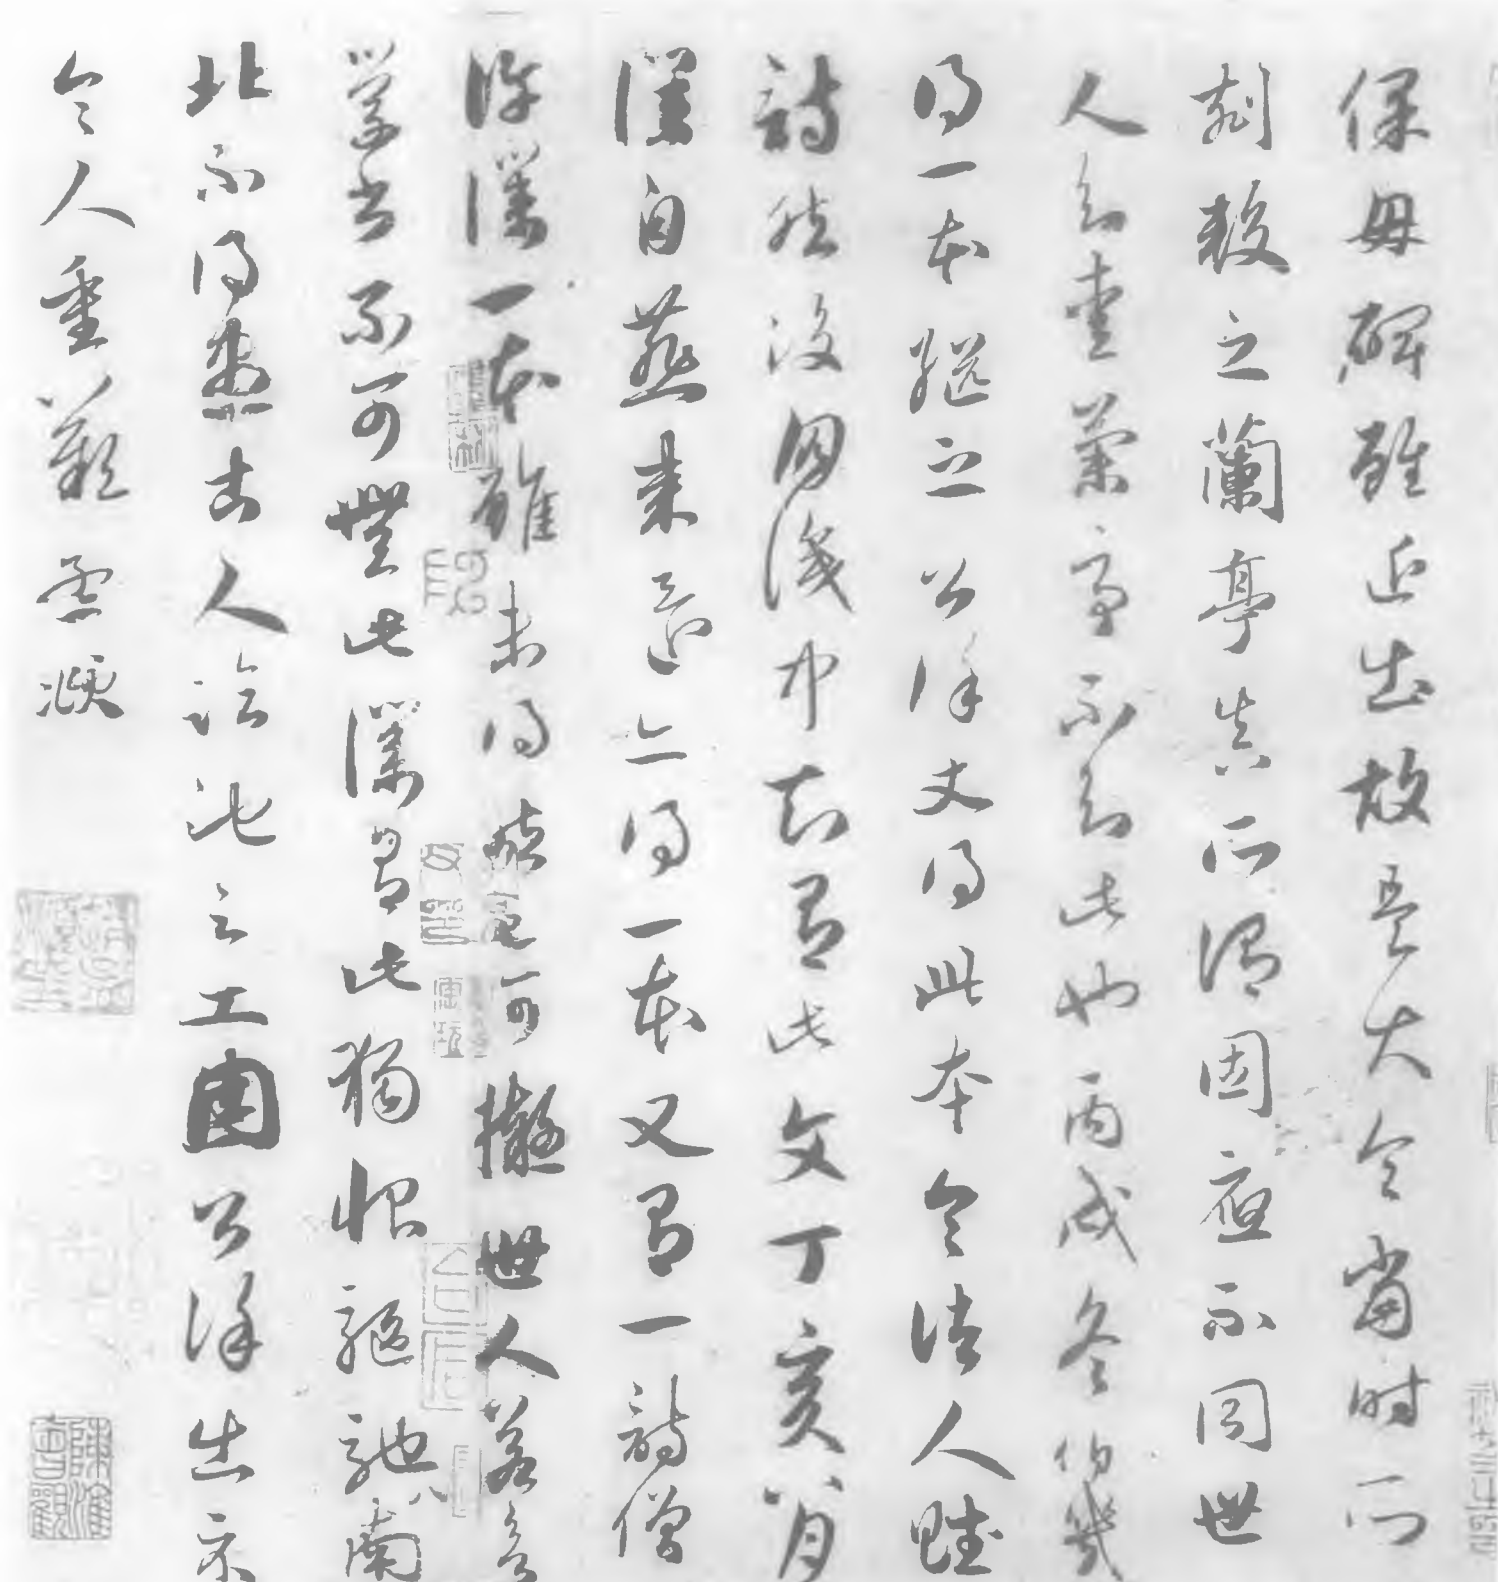 保母碑雖近出故是大令當時所
刻較之蘭亭真所謂因應不同世
人知重蘭亭不知此也丙戌冬伯幾
得一本継之公謹丈得此本令諸人賦
詩然後朋識中知有此文丁亥八月
僕自燕来還亦得一本又有一詩僧
許僕一本雖未得然已可擬世人若欲
学書不可無此僕有此獨恨驅馳南
北不得盡古人臨池之工因公謹出示
令人重歎孟頫
陳淮曽觀